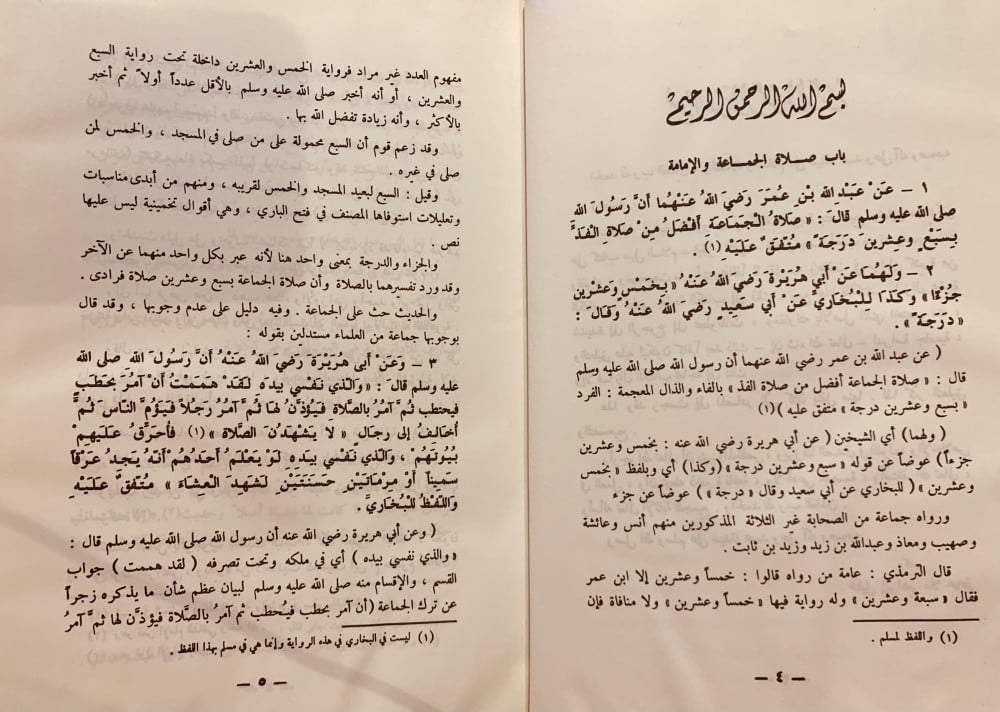 بسم الله الرحمن الرحيم
باب صلاة الجماعة والإمامة
١ – عَنْ عَبْدِ اللهِ بْنِ عُمَرَ رَضِيَ اللهُ عَنْهُمَا أَنَّ رَسُولَ اللهِ
صلى الله عليه وسلم قالَ : « صَلاةُ الْجَمَاعَةِ أَفْضَلُ مِنْ صَلاةِ الْفَذِّ
بِسَبْعٍ وعشرين دَرَجَةً » مُتَّفَقٌ عَلَيْهِ (١) .
٢ – وَلَهُمَا عَنْ أَبي هُرَيْرَةَ رَضِيَ اللهُ عَنْهُ « بِخَمْسٍ وَعِشْرِينَ
جُزْءًا » وَكَذَا لِلْبُخَارِيِّ عَنْ أَبي سَعِيدٍ رَضِيَ اللهُ عَنْهُ وَقَالَ :
« دَرَجَةً » .
( عن عبد الله بن عمر رضي الله عنهما أن رسول الله صلى الله عليه وسلم
قال : « صلاة الجماعة أفضل من صلاة الفذ » بالفاء والذال المعجمة : الفرد
« بسبع وعشرين درجة » متفق عليه )(١)
( ولهما) أي الشيخين ( عن أبي هريرة رضي الله عنه : بخمس وعشرين
جزءاً ) عوضاً عن قوله « سبع وعشرين درجة » (وكذا) أي وبلفظ « بخمس
وعشرين » ( للبخاري عن أبي سعيد وقال « درجة » ) عوضاً عن جزء
ورواه جماعة من الصحابة غير الثلاثة المذكورين منهم أنس وعائشة
وصهيب ومعاذ وعبدالله بن زيد وزيد بن ثابت .
قال الترمذي : عامة من رواه قالوا : خمساً وعشرين إلا ابن عمر
فقال « سبعة وعشرين » وله رواية فيها « خمساً وعشرين » ولا منافاة فإن
(١) واللفظ لمسلم .
– ٤ –
مفهوم العدد غير مراد فرواية الخمس والعشرين داخلة تحت رواية السبع
والعشرين ، أو أنه أخبر صلى الله عليه وسلم بالأقل عدداً أولاً ثم أخبر
بالأكثر ، وأنه زيادة تفضل الله بها .
وقد زعم قوم أن السبع محمولة على من صلى في المسجد ، والخمس لمن
صلى في غيره .
وقيل : السبع لبعيد المسجد والخمس لقريبه ، ومنهم من أبدى مناسبات
وتعليلات استوفاها المصنف في فتح الباري ، وهي أقوال تخمينية ليس عليها
نص .
والجزاء والدرجة بمعنى واحد هنا لأنه عبر بكل واحد منهما عن الآخر
وقد ورد تفسيرهما بالصلاة وأن صلاة الجماعة بسبع وعشرين صلاة فرادى .
والحديث حث على الجماعة . وفيه دليل على عدم وجوبها ، وقد قال
بوجوبها جماعة من العلماء مستدلين بقوله :
٣ – وَعَنْ أبى هُرَيْرَةَ رَضِيَ اللهُ عَنْهُ أَنَّ رَسُولَ اللهِ صلى الله
عليه وسلم قالَ : « وَالَّذي نَفْسي بيدهِ لَقَدْ هَمَمْتُ أَنْ آمُرَ بحَطَبٍ
فيحتطب ثُمَّ آمُرَ بالصَّلاةِ فَيُؤَذَّنَ لهَا ثُمَّ آمُرَ رَجُلاً فَيَؤُمَّ النَّاسَ ثُمَّ
أُخَالِفَ إلى رجالٍ « لا يَشْهَدُونَ الصَّلاةَ » (١) فَأُحَرِّقَ عَلَيهِمْ
بُيُوتَهُمْ ، وَالَّذي نَفْسي بيدهِ لَوْ يَعْلَمُ أَحَدُهُمْ أَنَّهُ يَجِدُ عَرْقاً
سَميناً أَوْ مِرْمَاتَيْنِ حَسَنَتَيْنِ لَشَهِدَ الْعِشَاءَ » مُتَّفَقٌ عَلَيْهِ
وَاللَّفْظُ لِلْبُخَارِيِّ .
( وعن أبي هريرة رضي الله عنه أن رسول الله صلى الله عليه وسلم قال :
« والذي نفسي بيده ) أي في ملكه وتحت تصرفه ( لقد هممت ) جواب
القسم ، والإقسام منه صلى الله عليه وسلم لبيان عظم شأن ما يذكره زجراً
عن ترك الجماعة ( أن آمر بحطب فيُحطب ثم آمرُ بالصَّلاة فيؤذَّن لها ثمَّ آمرُ
(١) ليست في البخاري في هذه الرواية وإنما هي في مسلم بهذا اللفظ .
– ٥ –